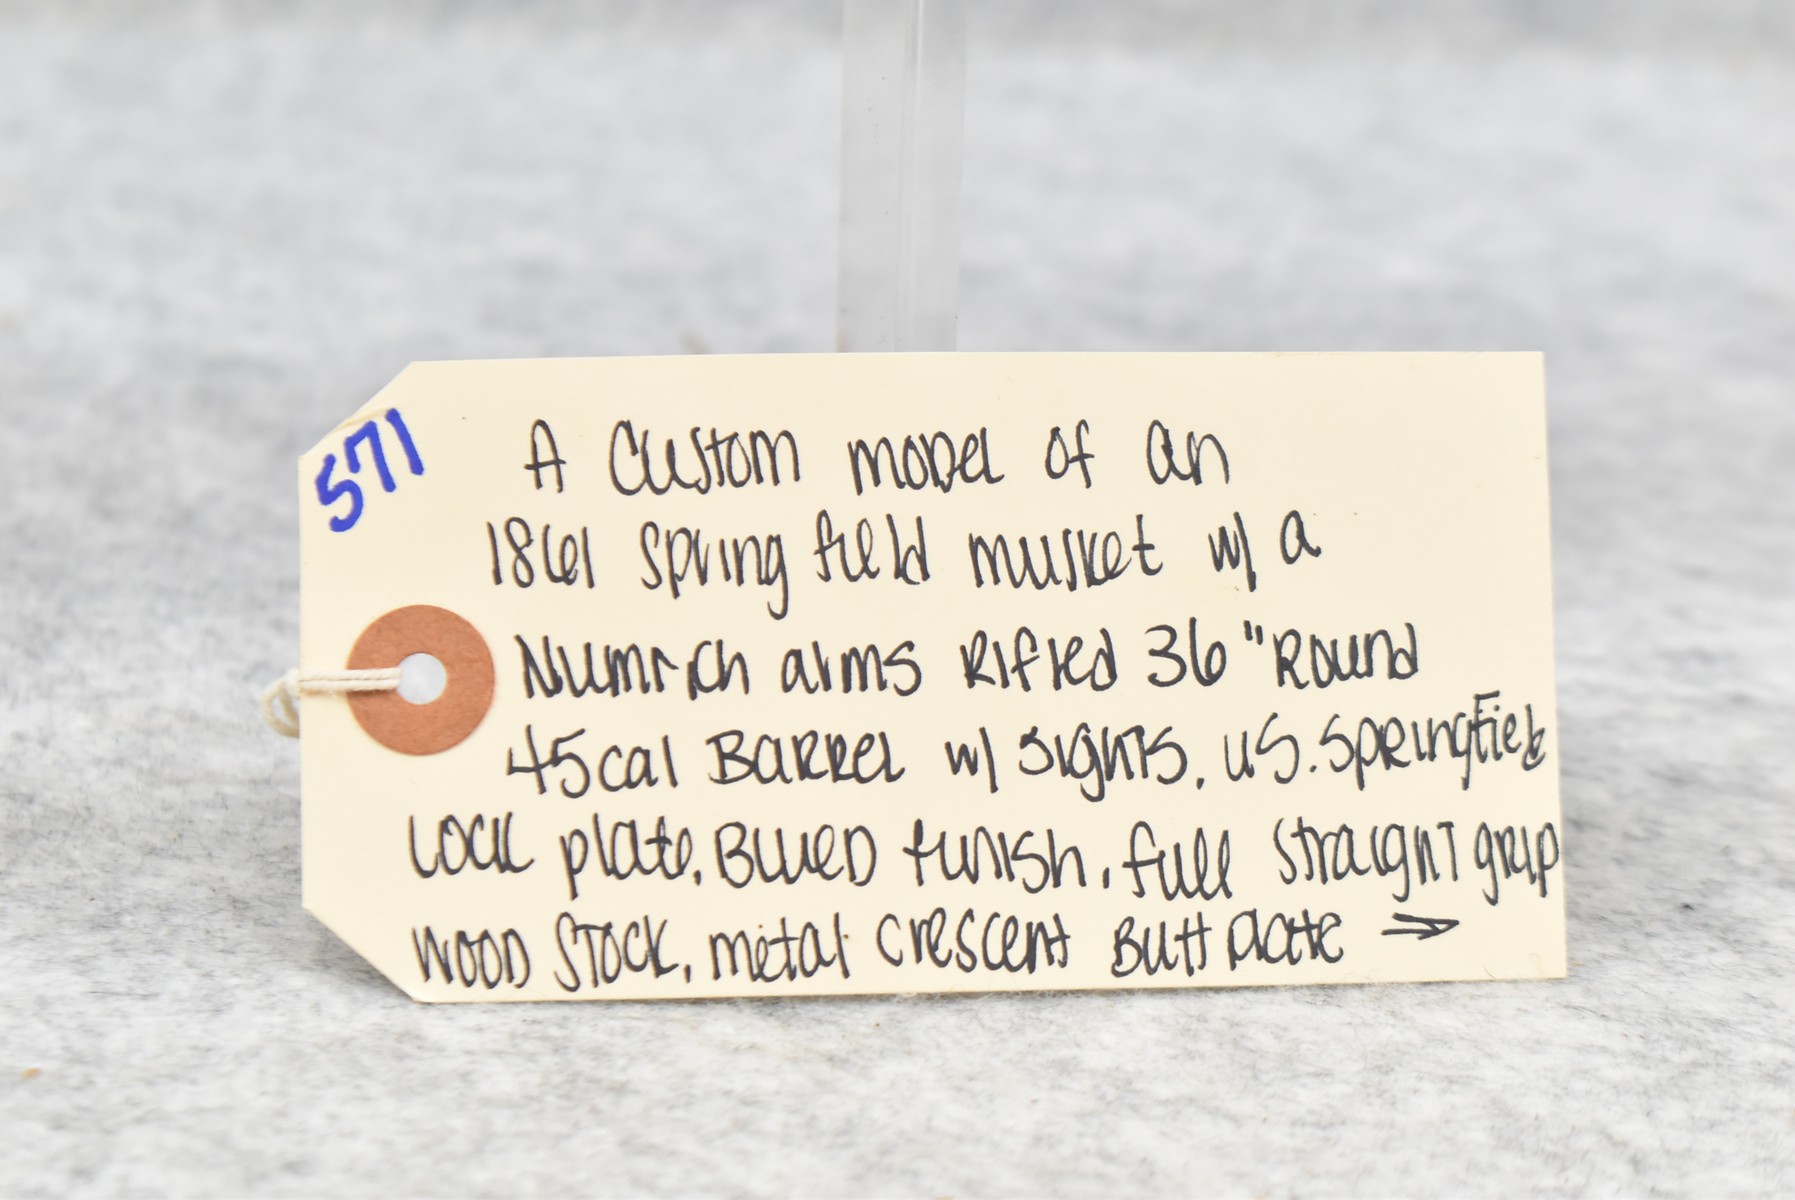 571
A Custom model of an
1861 Springfield musket w/ a
Numrich arms Rifled 36" Round
45cal Barrel w/ sights, U.S. Springfield
Lock plate, Blued finish, full straight grip
wood stock, metal crescent Butt plate →